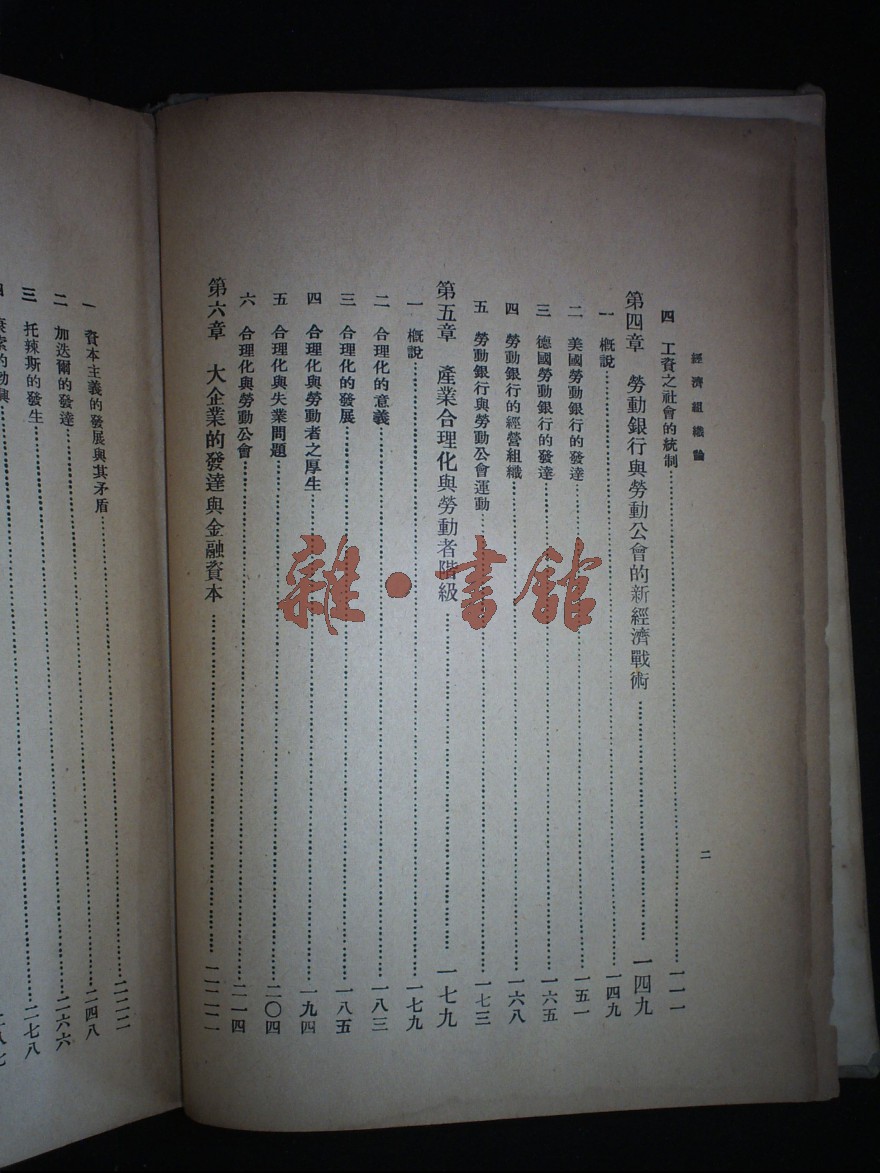 經濟組織論
二
四 工資之社會的統制……一一一
第四章 勞動銀行與勞動公會的新經濟戰術……一四九
一 概說……一四九
二 美國勞動銀行的發達……一五一
三 德國勞動銀行的發達……一六五
四 勞動銀行的經營組織……一六八
五 勞動銀行與勞動公會運動……一七三
第五章 產業合理化與勞動者階級……一七九
一 概說……一七九
二 合理化的意義……一八三
三 合理化的發展……一八五
四 合理化與勞動者之厚生……一九四
五 合理化與失業問題……二〇四
六 合理化與勞動公會……二一四
第六章 大企業的發達與金融資本……二二二
一 資本主義的發展與其矛盾……二二二
二 加迭爾的發達……二四八
三 托辣斯的發生……二六六
四 索的勃興……二七八
雜·書館